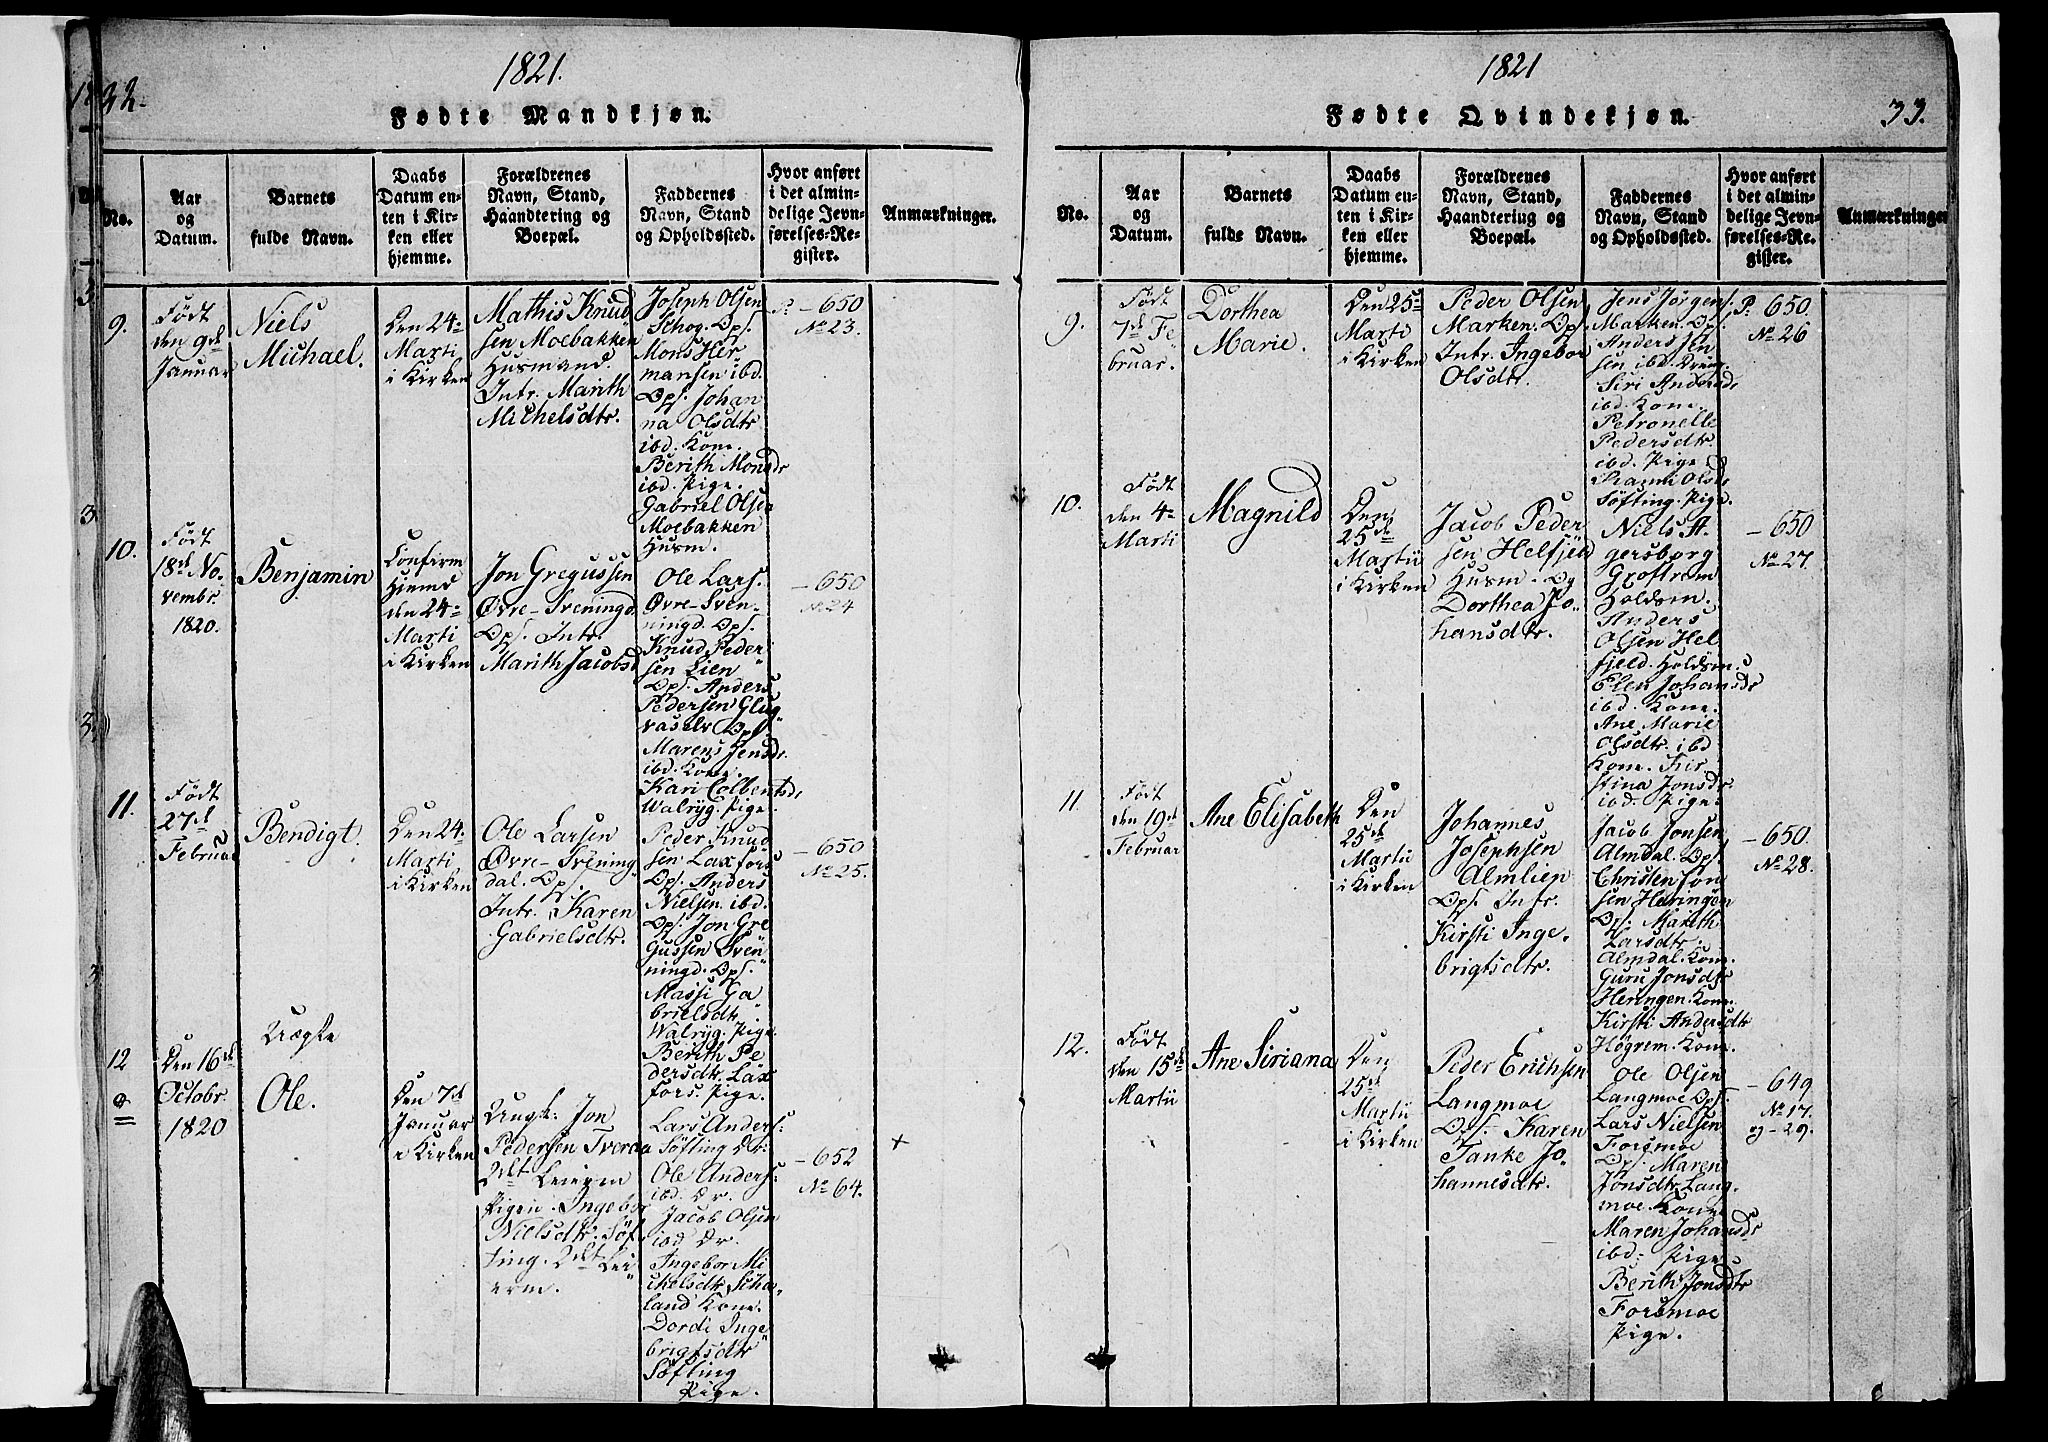 32.
1821.
Fødte Mandkjøn.
No.
Aar
og
Datum.
Barnets
fulde Navn.
Daabs
Datum en-
ten i Kir-
ken eller
hjemme.
Forældrenes
Navn, Stand,
Haandtering og
Boepæl.
Faddernes
Navn, Stand
og Opholdssted.
Hvor anført
i det almin-
delige Jevn-
førelses-Re-
gister.
Anmærkninger.
9.
Født
den 9de
Januar
Niels
Michael.
Den 24=
Marti
i Kirken
Mathis Knud
sen Moebakken
Husmand.
Intr. Marith
Michelsdtr.
Joseph Olsen
Schog. Ops.
Mons Her
mansen ibd.
Ops. Johan
na Olsdtr
ibd. Kone.
Berith Monsdr
ibd. Pige.
Gabriel Olsen
Moebakken
Husm.
P. - 650
No 23.
10.
Født
18de No-
vembr.
1820.
Benjamin
Confirm
Hiemd
den 24=
Marti
i Kirken
Jon Gregussen
Øvre-Sveningd.
Ops. Intr.
Marith Jacobsd
Ole Lars.
Øvre-Sven-
ningd. Ops.
Knud Peder
sen Lien
Ops. Anders
Pedersen Glug
vaselv Ops.
Marens Jensdr.
ibd. Kone.
Kari Colbentsd.
Walryg. Pige.
- 650
No 24
11.
Født
27de
Februar
Bendigt.
Den 24.
Marti
i Kirken
Ole Larsen
Øvre-Svening
dal. Ops.
Intr. Karen
Gabrielsdtr.
Peder Knud
sen Laxfors
Ops. Anders
Nielsen ibd.
Ops. Jon Gre
gussen Sven
ningd. Ops.
Massi Ga
brielsdtr
Walryg. Pige.
Berith Pe
dersdtr. Lax
fors. Pige.
- 650
No 25.
12
Den 16de
Octobr.
1820
Uægte
Ole.
Den 7de
Januar
i Kirken
Ungk: Jon
Pedersen Tveraa
2det Leierm
Pigen Ingebor
Nielsdtr. Søf
ting. 2det Lei
erm.
Lars Anders:
Søfting Dr:
Ole Anders:
ibd. Dr.
Jacob Olsen
ibd Dr.
Ingebor Mi
chelsdtr.
land Kone.
Dordi Inge
brigtsdtr
Søfting
Pige.
- 652
No 64.
+
1821
33.
Fødte Qvindekjøn.
No.
Aar
og
Datum.
Barnets
fulde Navn.
Daabs
Datum en-
ten i Kir-
ken eller
hjemme.
Forældrenes
Navn, Stand,
Haandtering og
Boepæl.
Faddernes
Navn, Stand
og Opholdssted.
Hvor anført
i det almin-
delige Jevn-
førelses-Re-
gister.
Anmærkninger
9.
Født
7de Fe
bruar.
Dorthea
Marie.
Den 25=
Marti
i Kirken
Peder Olsen
Marken. Ops.
Intr. Ingebor
Olsdtr.
Jens Jørgens.
Marken. Ops.
Anders Jen
sen ibd. Dreng.
Siri Andersdr
ibd. Kone.
Petronelle
Pedersdtr.
ibd. Pige.
Olsdr
Søfting. Pige.
P. 650
No 26
10.
Født
den 4=
Marti
Magnild
Den
25de
Martii
i Kirken
Jacob Peder
sen Helfjeld
Husm. Og
Dorthea Jo-
hansdtr.
Niels A-
gersborg
Grostrem
Holdsm.
Anders
Olsen Hel
fjeld. Holdsm.
Elen Johansdr
ibd. Kone.
Ane Marie
Olsdtr. ibd
Kone. Kir
stina Jonsdr.
ibd. Pige.
- 650
No 27.
11.
Født
den 19de
Februar
Ane Elisabeth
Den
25de
Martii
i Kirken
Johannes
Josephsen
Almlien
Ops. Intr.
Kirsti Inge-
brigtsdtr.
Jacob Jonsen
Almdal. Ops.
Christen Jon
sen Heringen
Ops. Marith
Larsdtr.
Almdal. Kone.
Guru Jonsdtr
Heringen. Kone.
Kirsti Andersdtr
Høgrem. Kone.
- 650.
No 28.
12.
Født
den 15de
Martii
Ane Siriana
Den
25de
Martii
i Kirken
Peder Erichsen
Langmoe
Ops. Karen
Tanke Jo-
hannesdtr.
Ole Olsen
Langmoe Ops.
Lars Nielsen
Forsmoe
Ops. Maren
Jonsdtr. Lang-
moe. Kone
Maren Johansdr
ibd: Pige
Berith Jonsdtr
Forsmoe
Pige.
- 649
No 17.
og - 29.